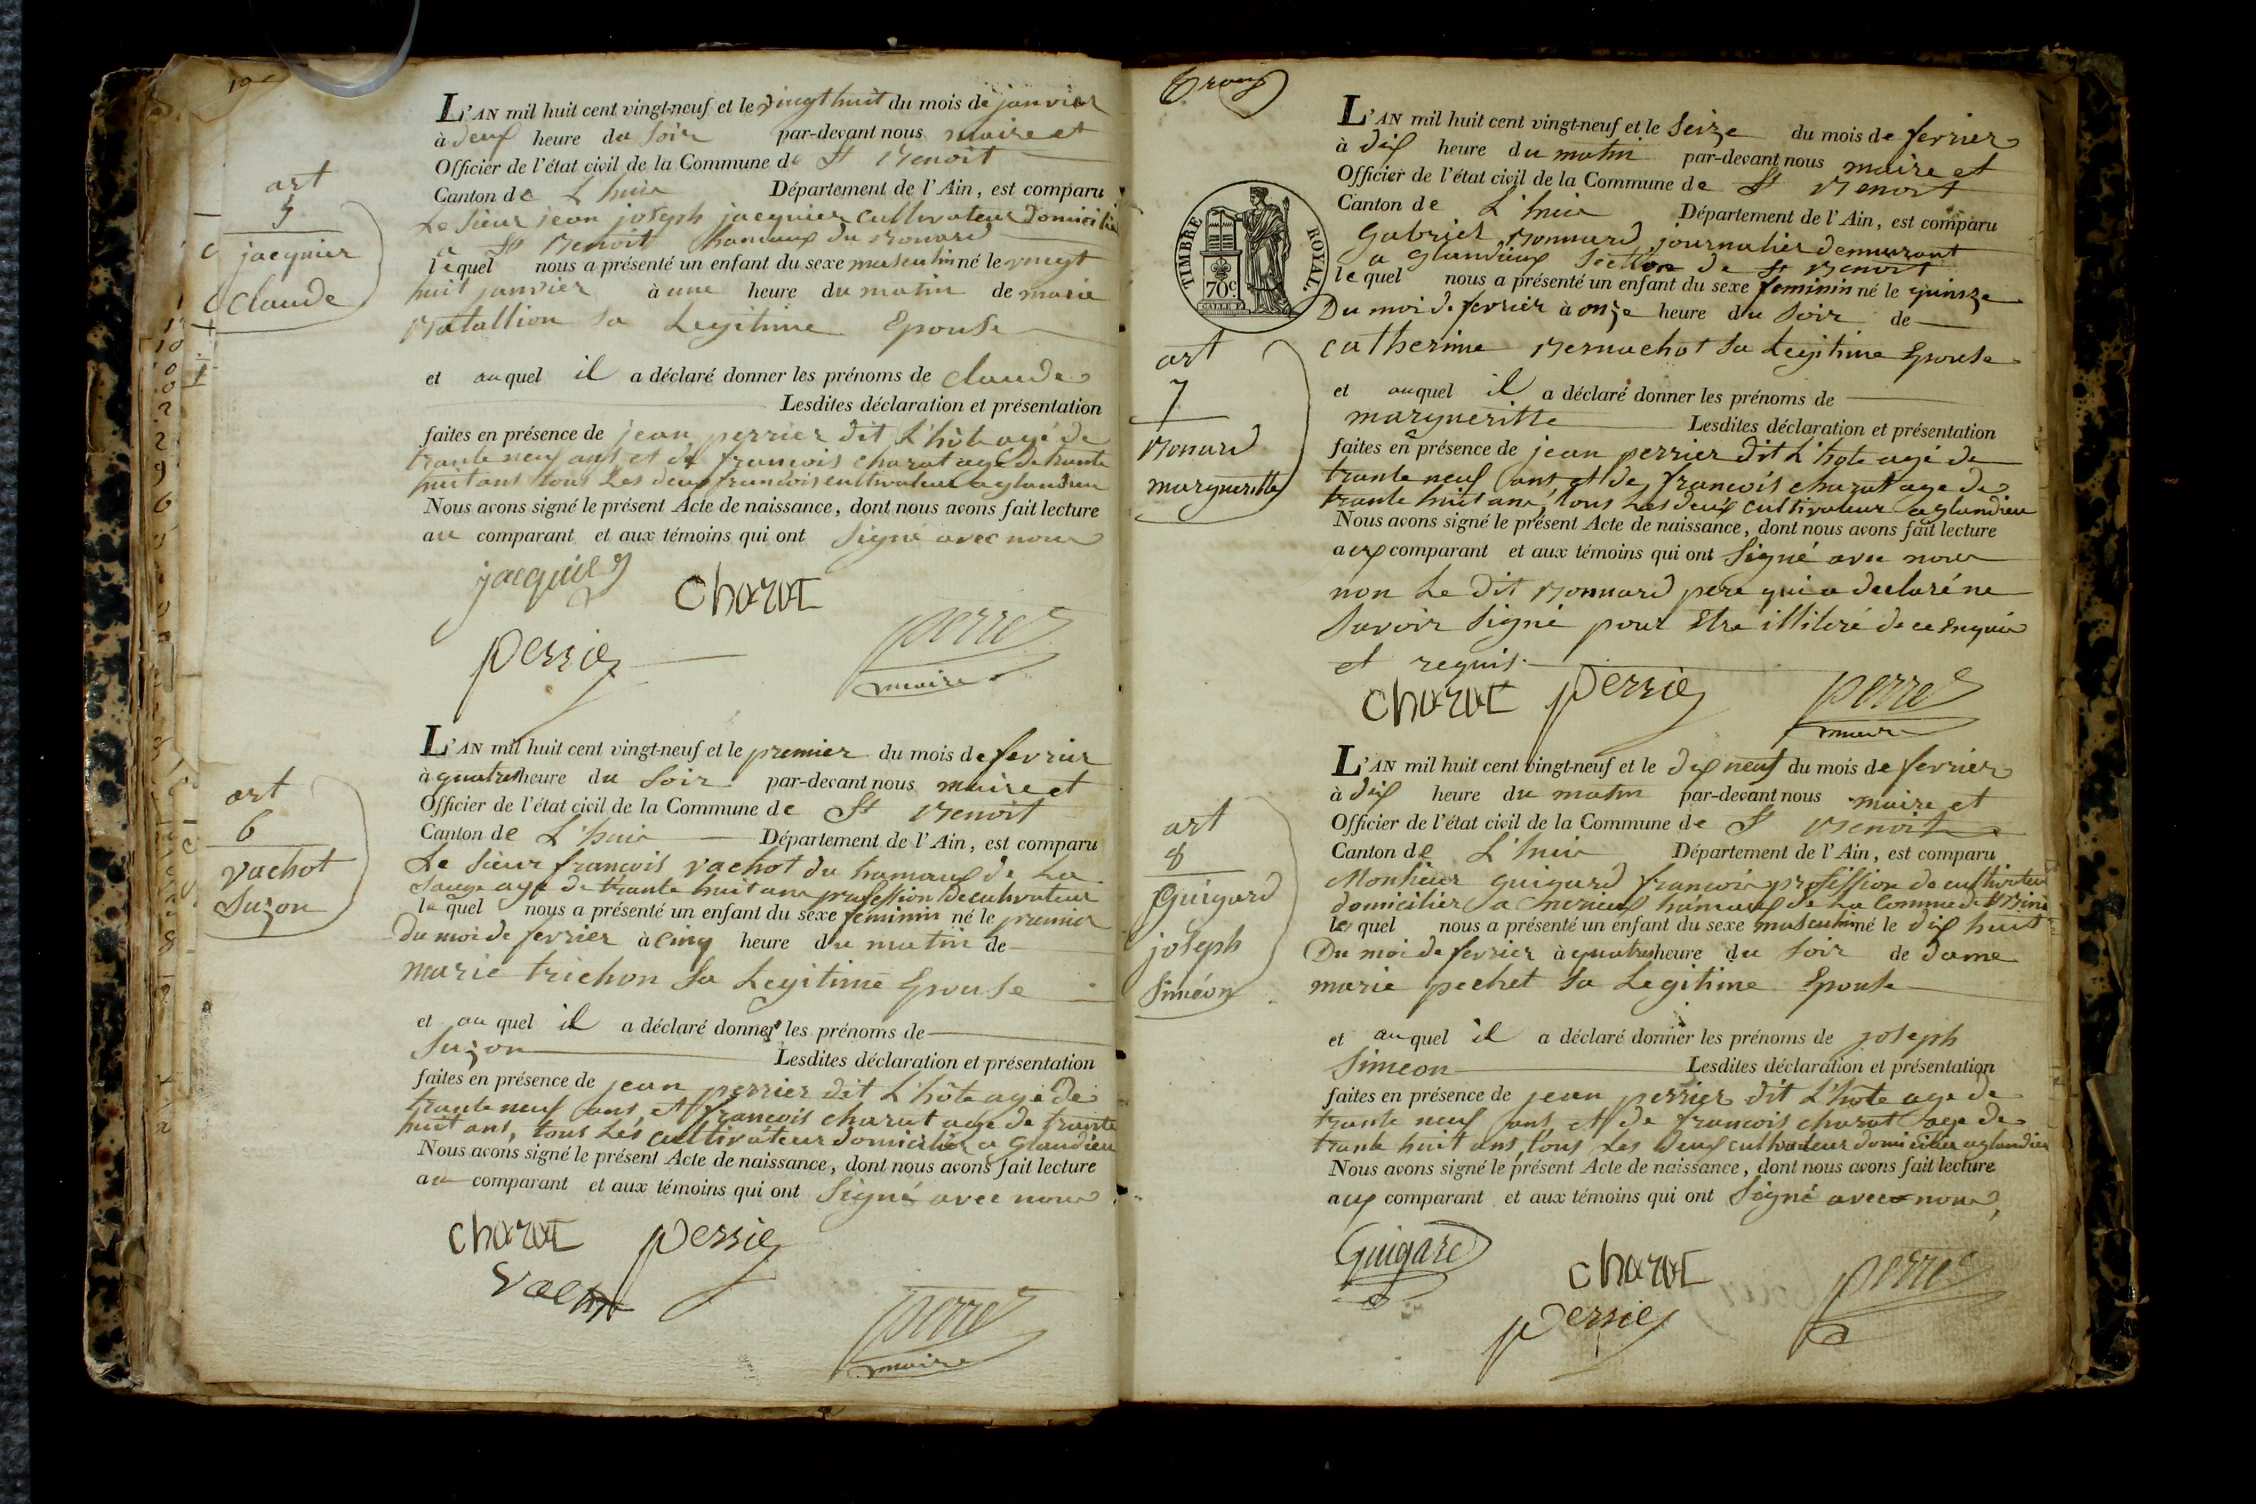 art
5
jacquier
Claude
L'AN mil huit cent vingt-neuf et le vingt huit du mois de janvier
à deux heure du soir par-devant nous maire et
Officier de l'état civil de la Commune de St Benoit
Canton de L'huis Département de l'Ain, est comparu
Le sieur jean joseph jacquier cultivateur domicilié
a St Benoit hameaux du Bonard
lequel nous a présenté un enfant du sexe masculin né le vingt
huit janvier à une heure du matin de marie
Batallion sa Legitime Epouse
et auquel il a déclaré donner les prénoms de claude
Lesdites déclaration et présentation
faites en présence de jean perrier dit L'hôte agé de
trante neuf ans et de francois charat agé de trante
huit ans tous Les deux francois cultivateur a glandieu
Nous avons signé le présent Acte de naissance, dont nous avons fait lecture
au comparant et aux témoins qui ont signé avec nous
jacquier
charat
perrier
perret
maire
art
6
vachot
Suzon
L'AN mil huit cent vingt-neuf et le premier du mois de fevrier
à quatres heure du soir par-devant nous maire et
Officier de l'état civil de la Commune de St Benoit
Canton de L'huis Département de l'Ain, est comparu
Le sieur francois vachot du hamaux de La
Sauge agé de trante huit ans profession De cultivateur
lequel nous a présenté un enfant du sexe feminin né le premier
du moi de fevrier à cinq heure du matin de
marie trichon sa Legitime Epouse
et auquel il a déclaré donner les prénoms de
Suzon
Lesdites déclaration et présentation
faites en présence de jean perrier dit L'hôte agé de
trante neuf ans, et francois charat agé de trante
huit ans, tous Les cultivateur domicilier a Glandieu
Nous avons signé le présent Acte de naissance, dont nous avons fait lecture
au comparant et aux témoins qui ont signé avec nous
charat perrier
perret
maire
TIMBRE ROYAL.
70c.
art
7
Bonard
margueritte
L'AN mil huit cent vingt-neuf et le seize du mois de fevrier
à dix heure du matin par-devant nous maire et
Officier de l'état civil de la Commune de St Benoit
Canton de L'huis Département de l'Ain, est comparu
Gabriel Bonnard journalier demeurant
a Glandieux section de St Benoit
lequel nous a présenté un enfant du sexe feminin né le quinze
Du moi de fevrier à onze heure du soir de
catherine Bernachot sa Legitime Epouse
et auquel il a déclaré donner les prénoms de
margueritte Lesdites déclaration et présentation
faites en présence de jean perrier Dit L'hote agé de
trante neuf ans et de francois charat agé de
trante huit ans, tous Les deux cultivateur a glandieu
Nous avons signé le présent Acte de naissance, dont nous avons fait lecture
aux comparant et aux témoins qui ont signé avec nous
non Le Dit Bonnard pere qui a declaré ne
savoir signé pour Etre illiteré de ce enquis
et requis.
charat perrier perret
maire
art
8
Guigard
joseph
Siméon
L'AN mil huit cent vingt-neuf et le dix neuf du mois de fevrier
à dix heure du matin par-devant nous maire et
Officier de l'état civil de la Commune de St Benoit
Canton de L'huis Département de l'Ain, est comparu
Monsieur guigard francois profession de cultivateur
domicilier a hamaux de La Commune de St Benoit
lequel nous a présenté un enfant du sexe masculin né le dix huit
Du moi de fevrier à quatres heure du soir de dame
marie pechet sa Legitime Epouse
et auquel il a déclaré donner les prénoms de joseph
Simeon Lesdites déclaration et présentation
faites en présence de jean perrier dit L'hote agé de
trante neuf ans et de francois charat agé de
trante huit ans, tous Les Deux cultivateur domicilier a glandieu
Nous avons signé le présent Acte de naissance, dont nous avons fait lecture
aux comparant et aux témoins qui ont signé avec nous,
Guigard
charat
perret
perrier